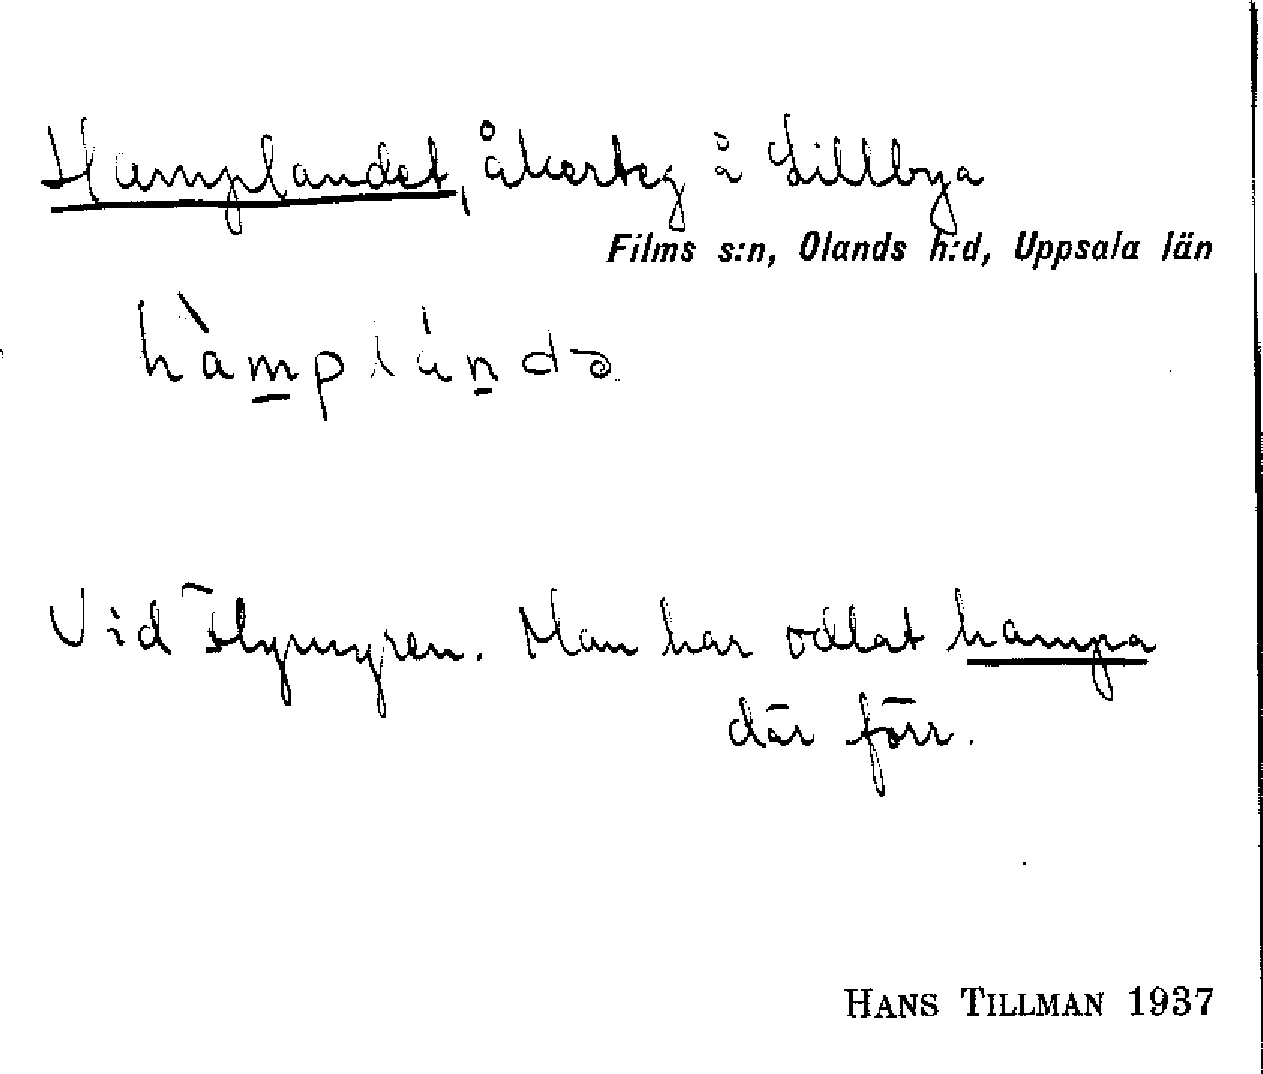 Hamplandet, åkerteg å Lillbya
Films s:n, Olands h:d, Uppsala län
hàmplándə
Vid Man har odlat hampa
där förr.
HANS TILLMAN 1937